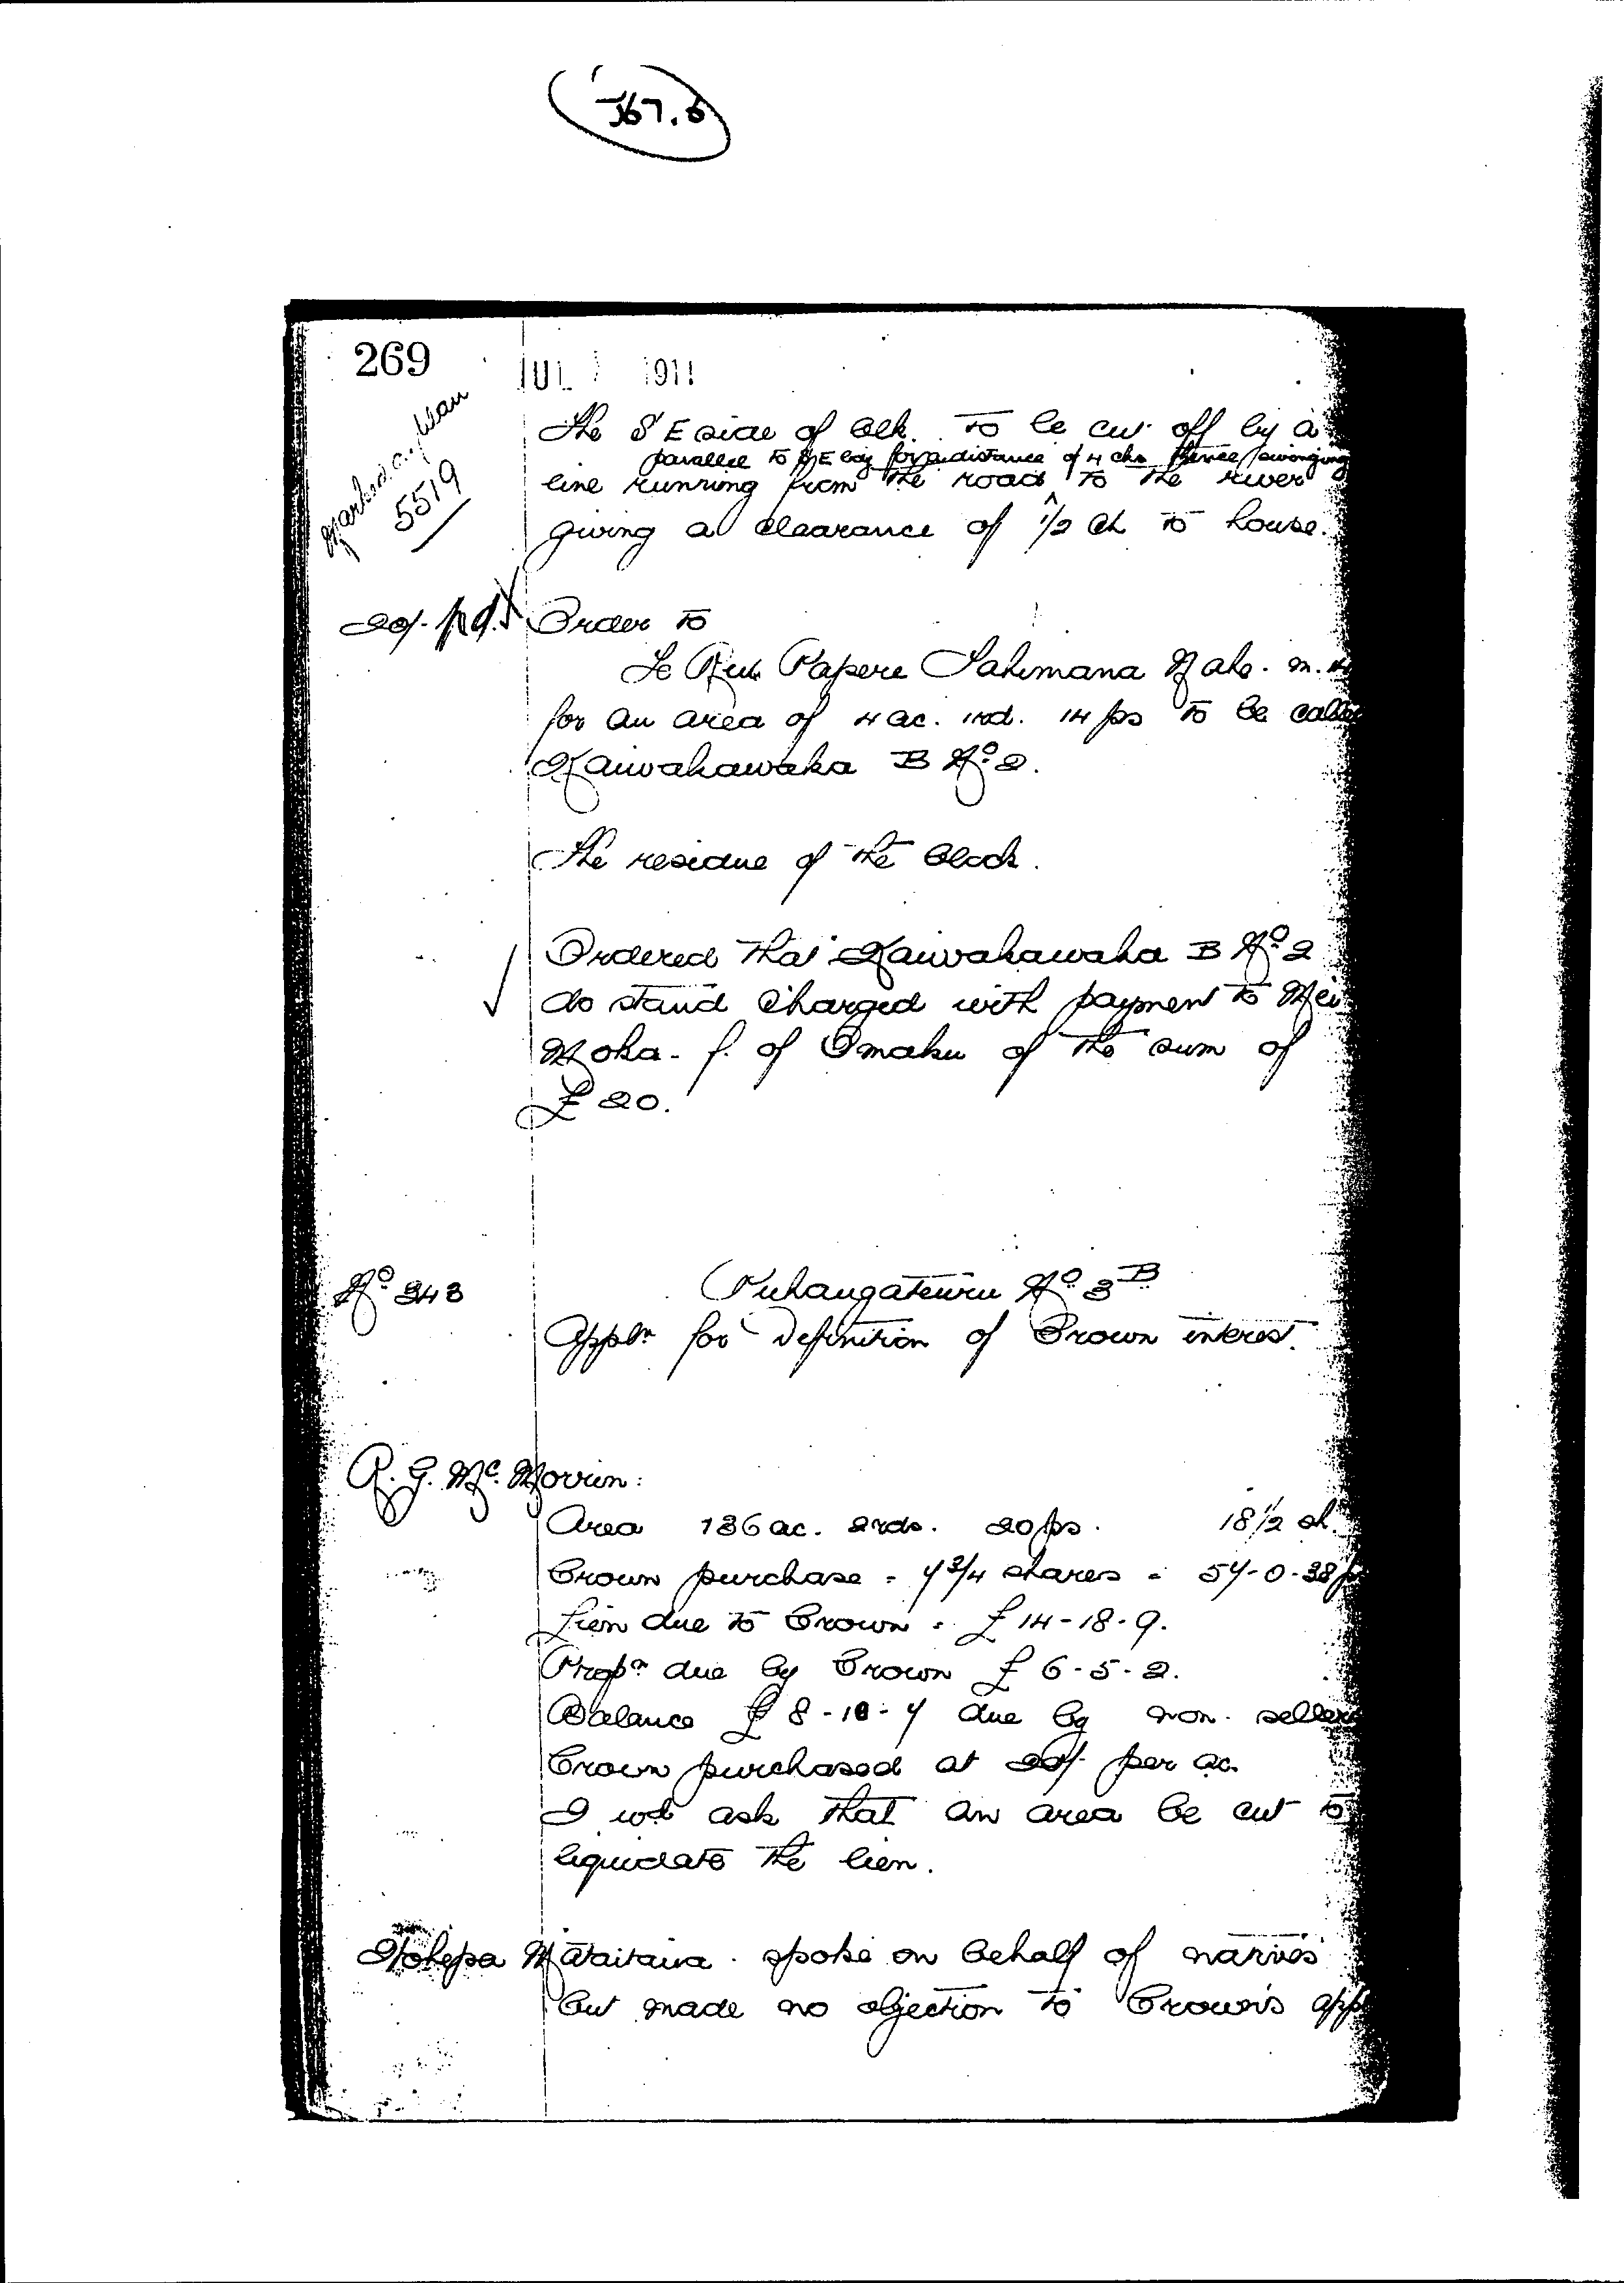 J67.6
269
JUL 1911
Marked on plan
5519
The S'E side of blk. to be cut off by a
parallel to S'E bdy for a distance of 4 chs thence swinging
line running from the road to the river
giving a clearance of 1/2 ch to house.
20/- pd. Order to
Te Papere Tahimana m.
for an area of 4 ac. 1rd. 14 ps to be called
Kaiwahawaha B No. 2.
The residue of the block.
Ordered that Kaiwahawaha B No. 2
do stand charged with payment to Mei
Moka - f. of Omahu of the sum of
£20.
No. 343 Puhangateuru No. 3B
Appln for Definition of Crown interest.
R. G. Mc. Morrin:
Area 136 ac. 2rds. 20 ps. 18 1/2 sh.
Crown purchase = 7 3/4 shares = 57-0-38 p
Lien due to Crown = £14-18-9.
Propn due by Crown £6-5-2.
Balance £8- -7 due by non-sellers
Crown purchased at 20/- per ac.
I wd ask that an area be cut to
liquidate the lien.
Hohepa Mataitaua. spoke on behalf of natives
but made no objection to Crown's app